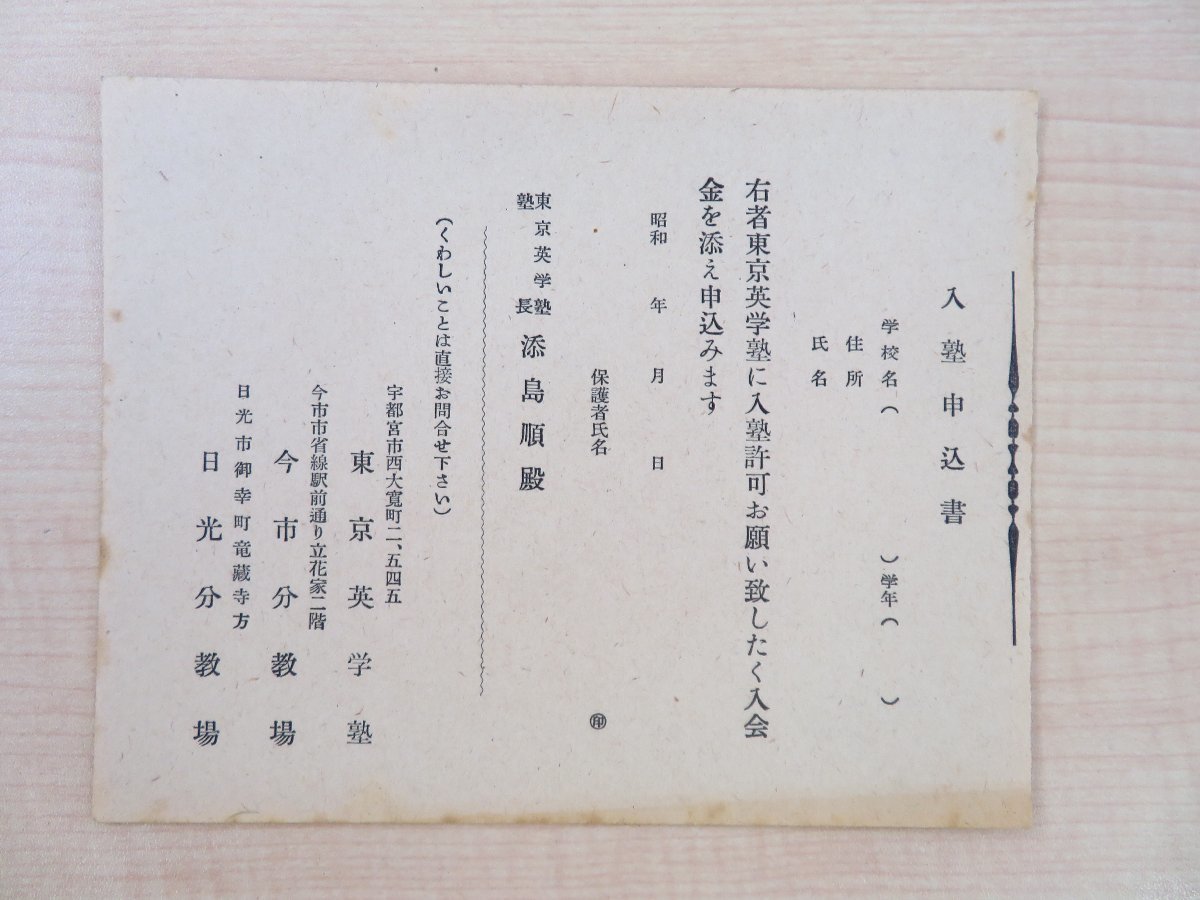 入塾申込書
学校名（　　　　　）学年（　　　）
住所
氏名
右者東京英学塾に入塾許可お願い致したく入会
金を添え申込みます
昭和　年　月　日
保護者氏名　　　　　㊞
東京英学塾
塾長
添島順殿
（くわしいことは直接お問合せ下さい）
宇都宮市西大寛町二、五四五
東京英学塾
今市市省線駅前通り立花家二階
今市分教場
日光市御幸町竜蔵寺方
日光分教場